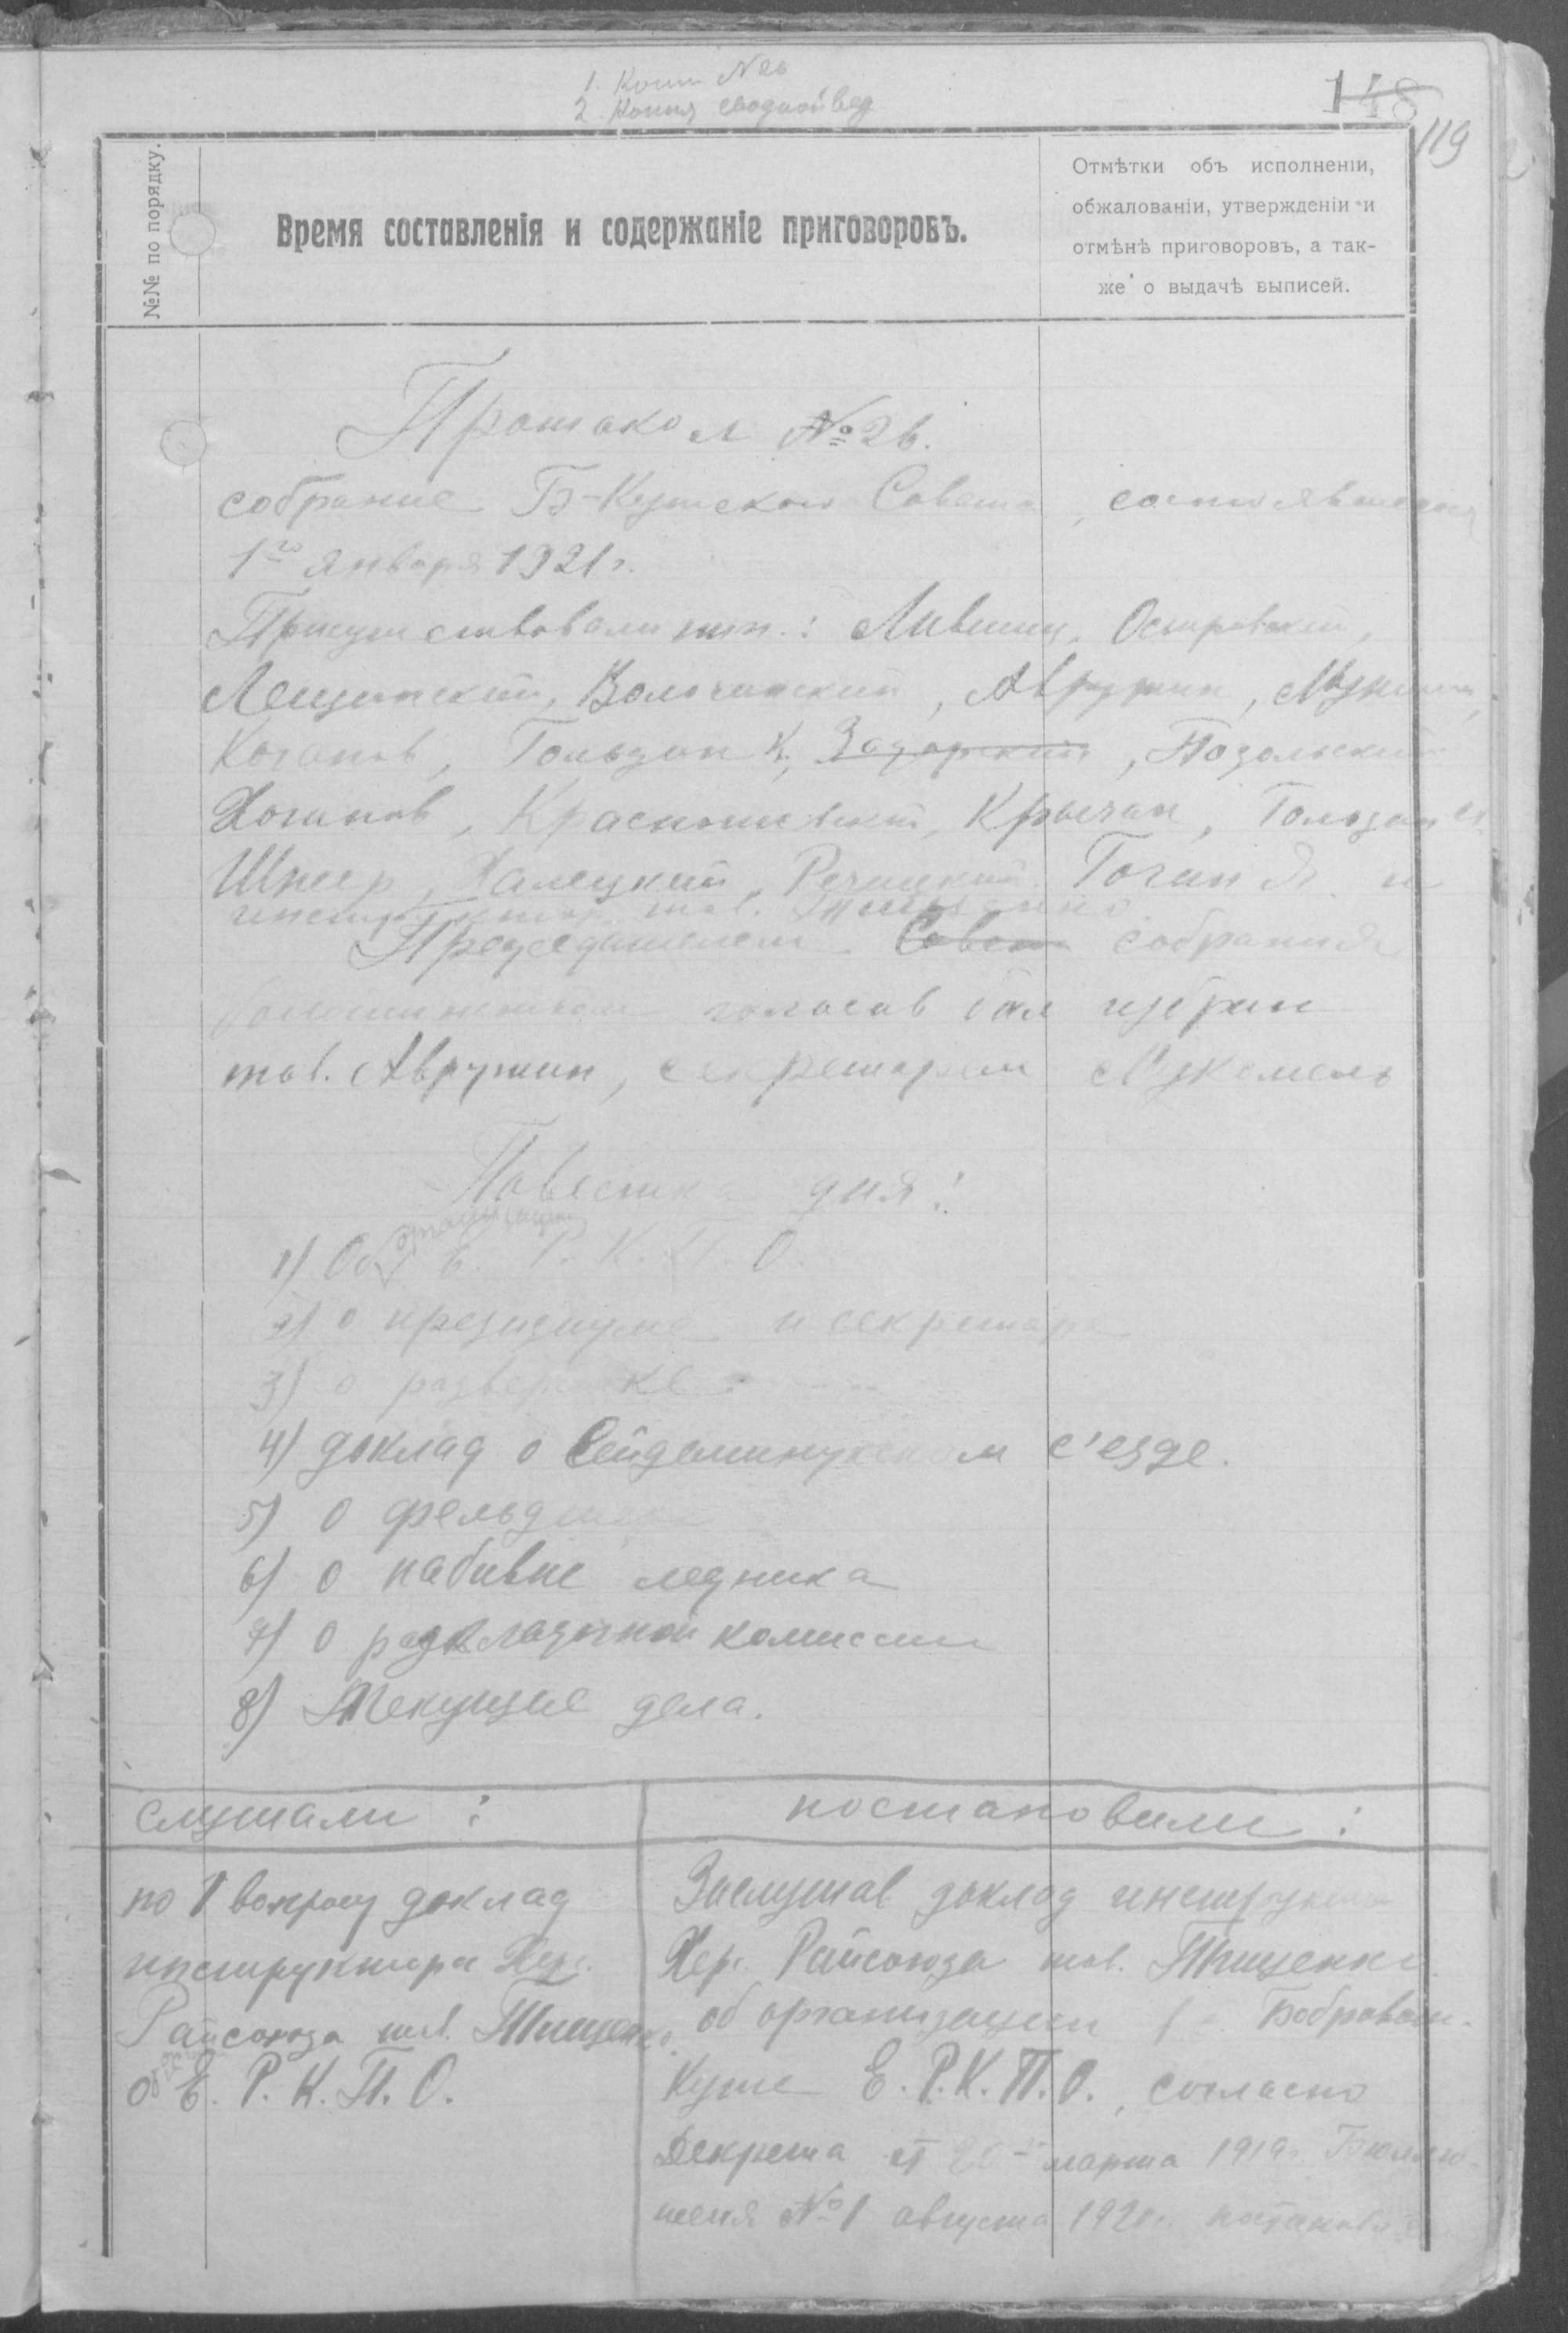 1. Копия №26
2. Копия сводной вед
148
119
№№ по порядку.
Время составленія и содержаніе приговоровъ.
Отмѣтки объ исполненіи,
обжалованіи, утвержденіи и
отмѣнѣ приговоровъ, а так-
же о выдачѣ выписей.
Протокол №26.
собрание Б-Кутского Совета, состоявшегося
1го января 1921г.
Присутствовали т.т.: Лившиц, Островский,
Лещинский, Волочинский, Аврутин,
Коганов, Гользан К, Задорский, Подольский
Коганов, Крыган, Гользан
Шнеер, Халецкий, Речицкий, Гоган Я. и
инструктор тов. Тищенко.
Председателем Совета собрания
большинством голосов был избран
тов. Аврутин, секретарем Мукомель
Повестка дня:
1) Об организации Е. Р. К. П. О.
2) о президиуме и секретаре
3) о разверстке
4) доклад о Сейдеминухском с'езде.
5) О фельдшере
6) О набивке ледника
7) О раскладочной комиссии
8) Текущие дела.
слушали :
постановили :
по 1 вопросу доклад
инструктора Хер.
Райсоюза тов. Тищенко
об Е. Р. К. П. О.
Заслушав доклад инструктора
Хер. Райсоюза тов. Тищенко
об организации Бобровом-
Куте Е. Р. К. П. О., согласно
Декрета от 20го марта 1919г. Бюлле-
теня №1 августа 1920г. постановили